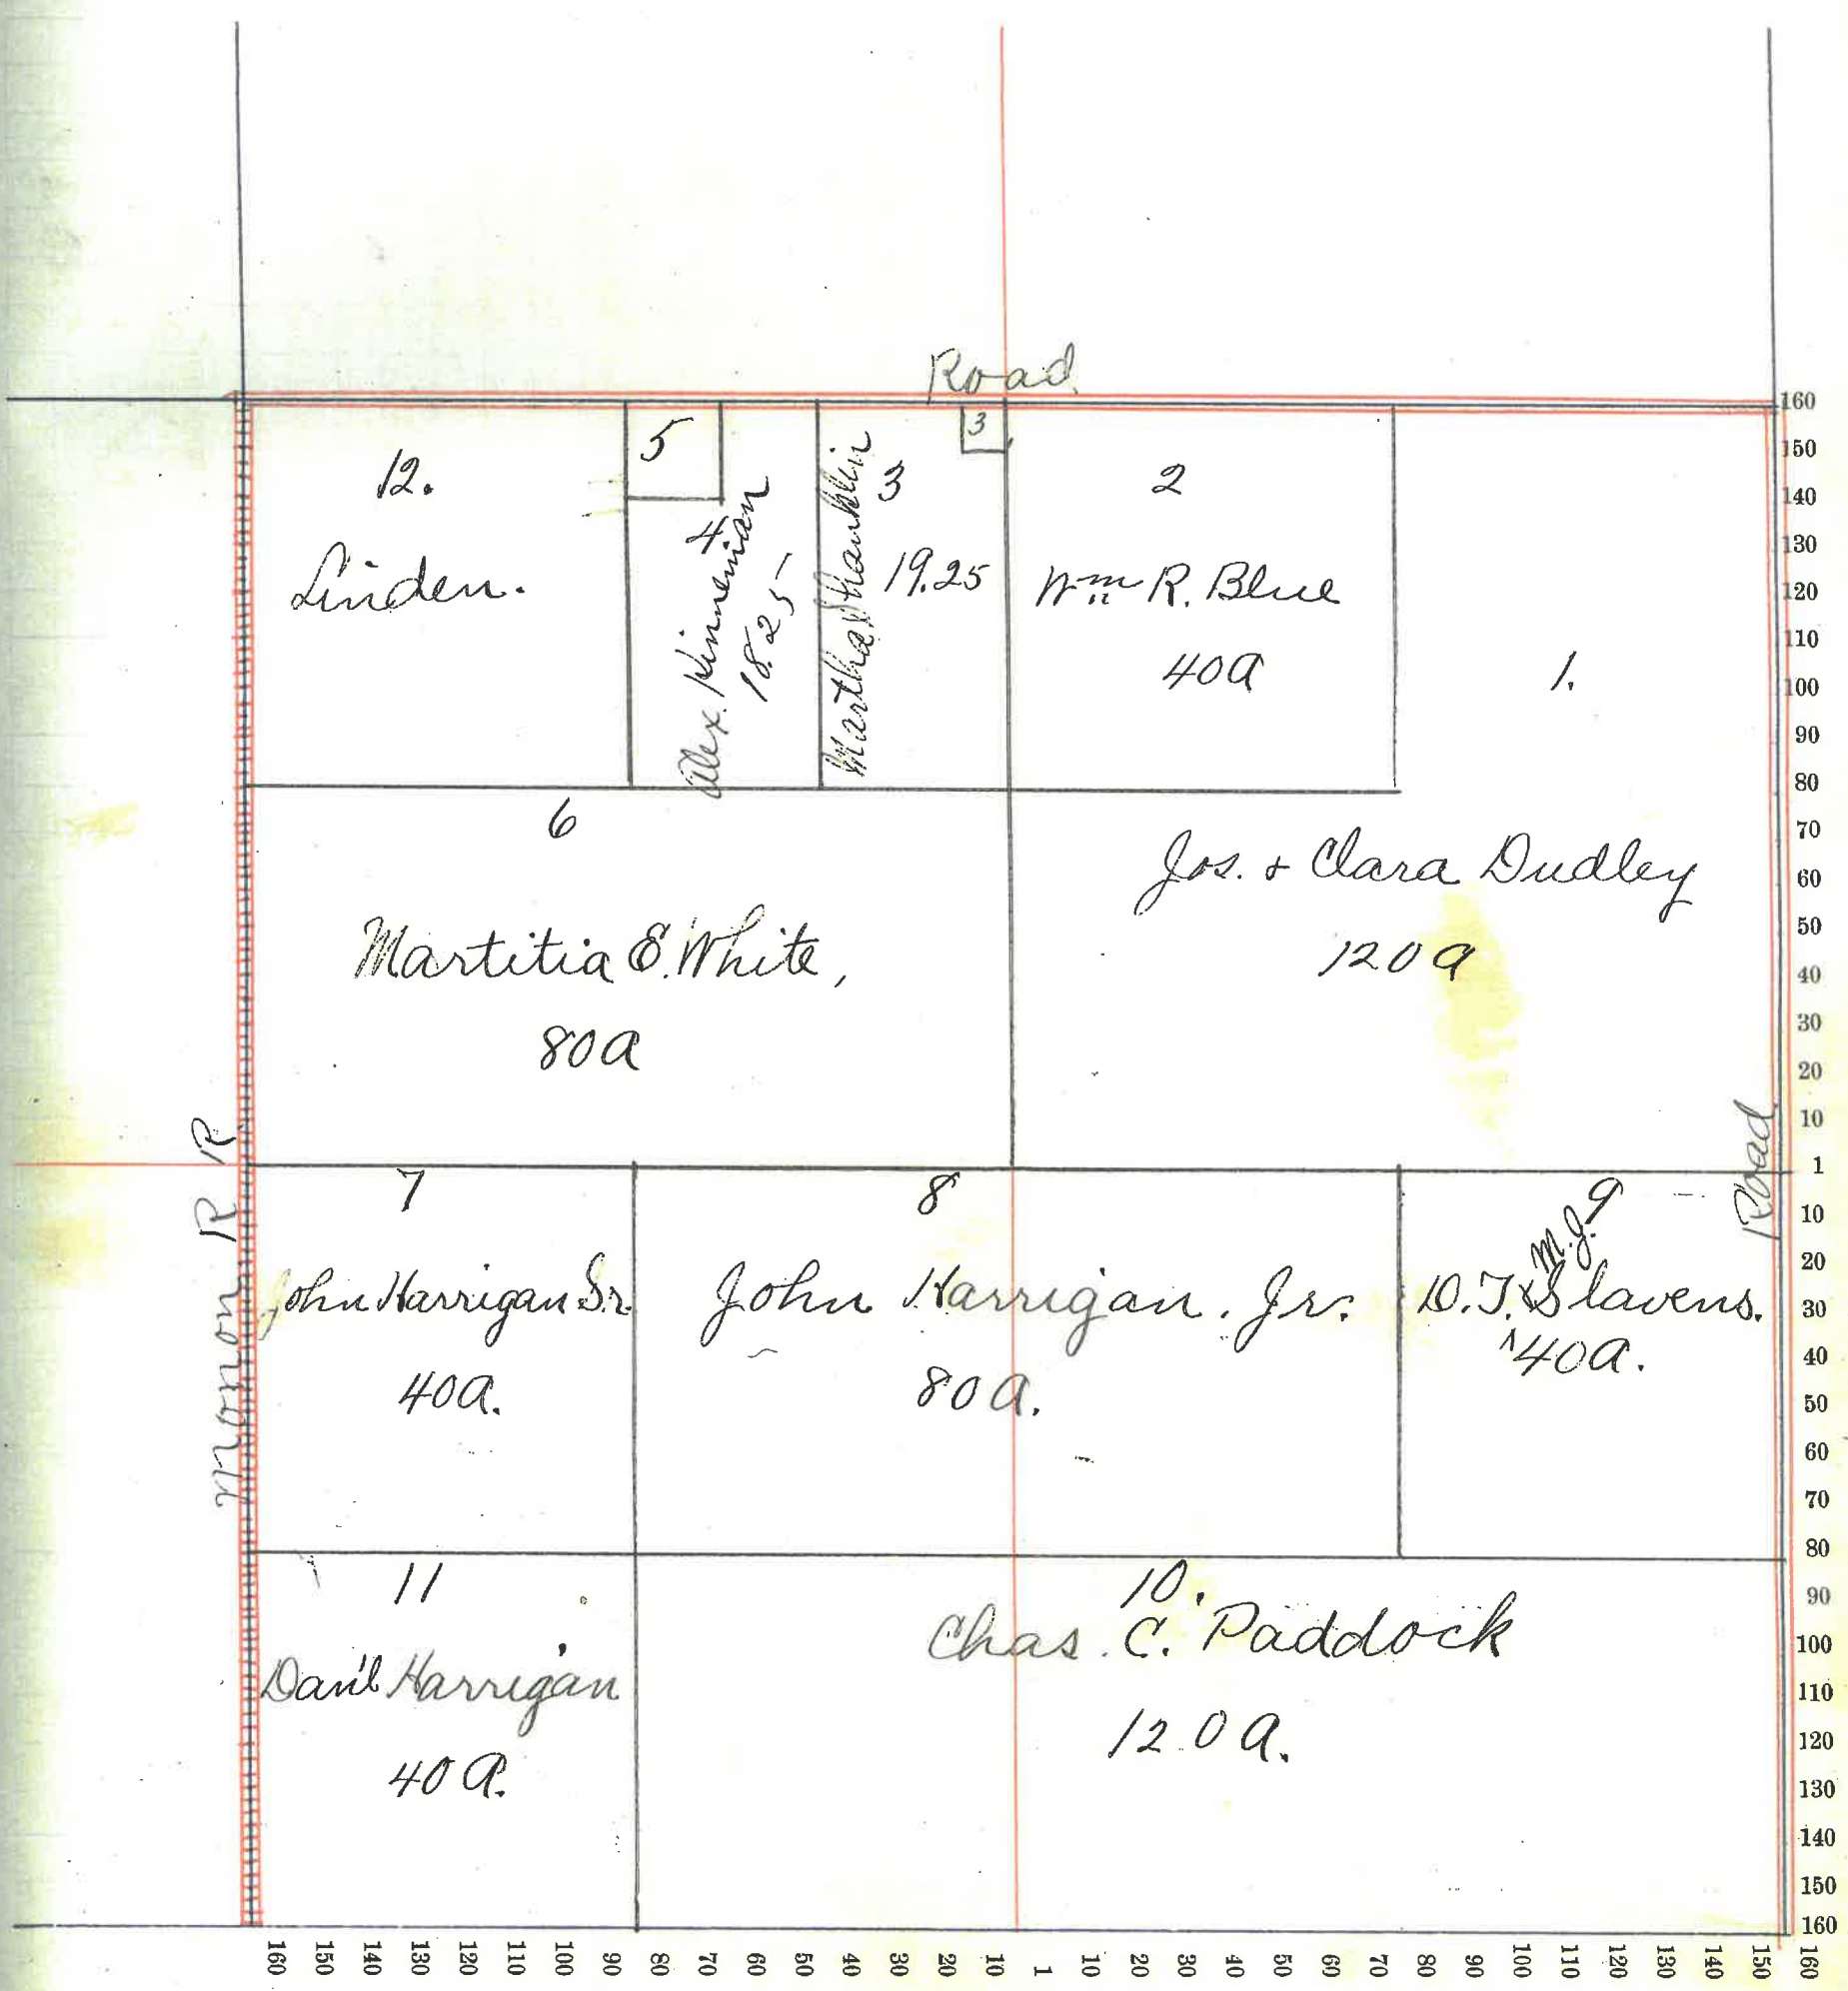 Road
12.
Linden.
5
4
Alex. Kinneman
18.25
Martha Shanklin
3
19.25
3
2
Wm R. Blue
40A
1.
Jos. + Clara Dudley
120A
6
Martitia E. White,
80A
Monon R R
Road
7
John Harrigan Sr.
40A.
8
John Harrigan. Jr.
80A.
9
D.T. & M.J. Slavens.
40A.
11
Dan'l Harrigan
40A.
10.
Chas. C. Paddock
120A.
160
150
140
130
120
110
100
90
80
70
60
50
40
30
20
10
1
10
20
30
40
50
60
70
80
90
100
110
120
130
140
150
160
160 150 140 130 120 110 100 90 80 70 60 50 40 30 20 10 1 10 20 30 40 50 60 70 80 90 100 110 120 130 140 150 160